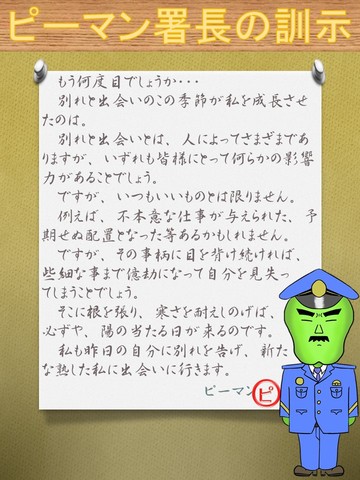 ピーマン署長の訓示
もう何度目でしょうか・・・
別れと出会いのこの季節が私を成長させ
たのは。
別れと出会いとは、人によってさまざまであ
りますが、いずれも皆様にとって何らかの影響
力があることでしょう。
ですが、いつもいいものとは限りません。
例えば、不本意な仕事が与えられた、予
期せぬ配置となった等あるかもしれません。
ですが、その事柄に目を背け続ければ、
些細な事まで億劫になって自分を見失っ
てしまうことでしょう。
そこに根を張り、寒さを耐えしのげば、
必ずや、陽の当たる日が来るのです。
私も昨日の自分に別れを告げ、新た
な熟した私に出会いに行きます。
ピーマン
ピ